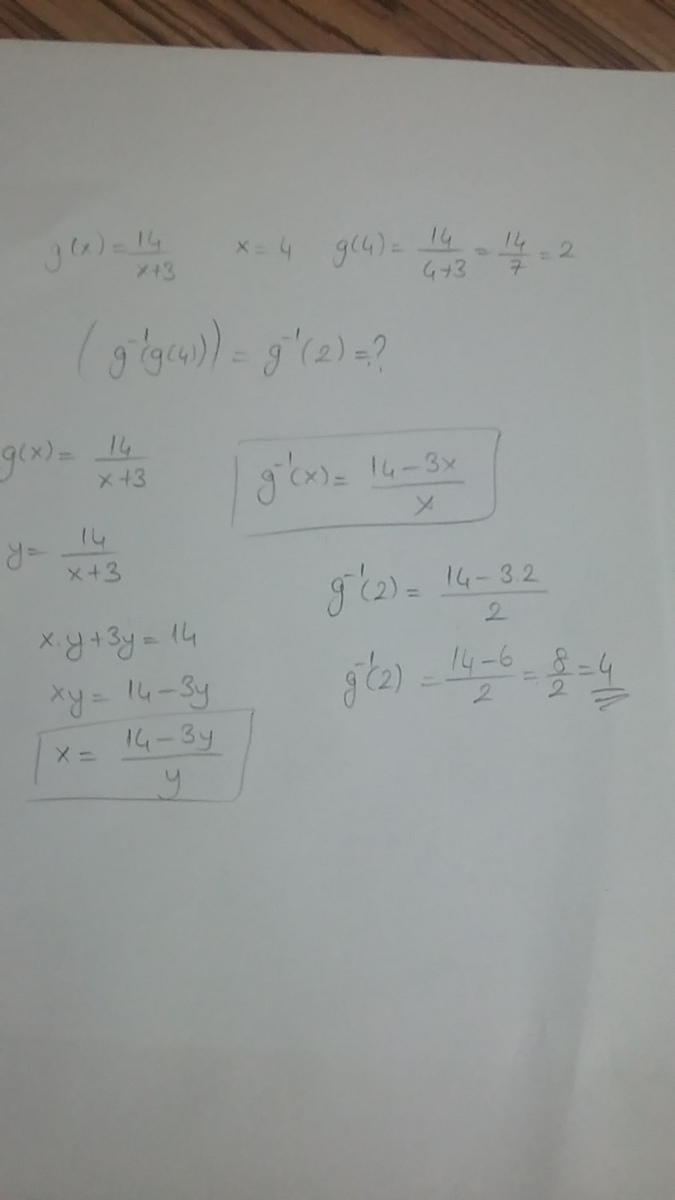 g(x) = 14/(x+3)   x = 4   g(4) = 14/(4+3) = 14/7 = 2
(g⁻¹(g(4))) = g⁻¹(2) = ?
g(x) = 14/(x+3)
y = 14/(x+3)
x.y + 3y = 14
xy = 14 - 3y
x = (14 - 3y)/y
g⁻¹(x) = (14 - 3x)/x
g⁻¹(2) = (14 - 3.2)/2
g⁻¹(2) = (14 - 6)/2 = 8/2 = 4